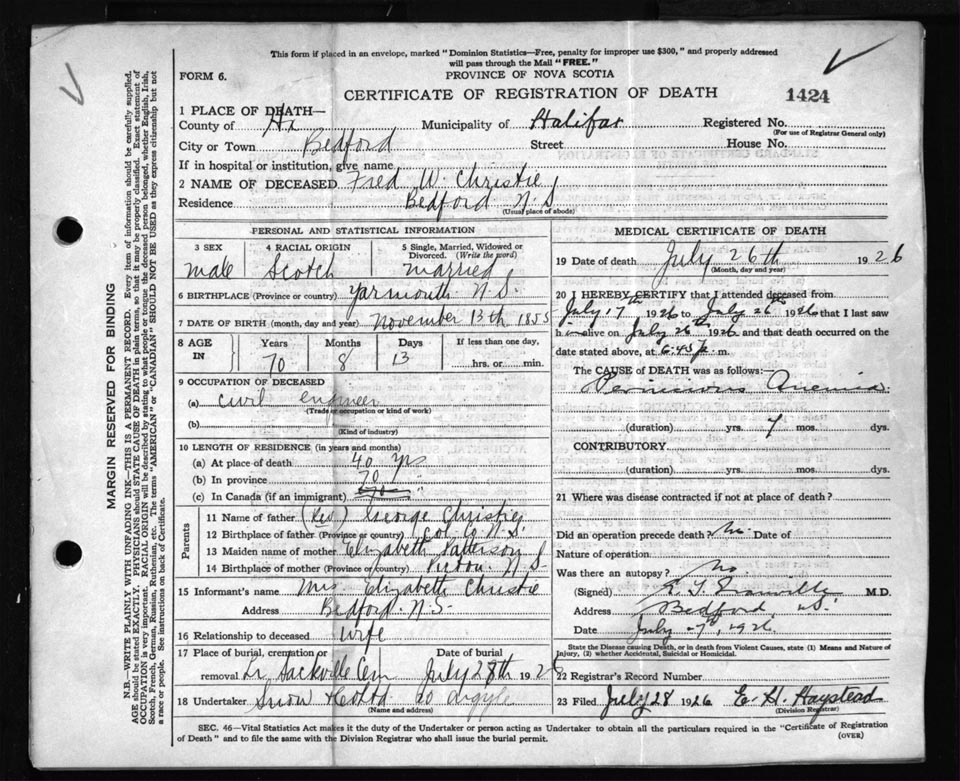 This form if placed in an envelope, marked "Dominion Statistics—Free, penalty for improper use $300," and properly addressed
will pass through the Mail "FREE."
FORM 6.
PROVINCE OF NOVA SCOTIA
CERTIFICATE OF REGISTRATION OF DEATH
1424
1 PLACE OF DEATH—
County of Hx Municipality of Halifax Registered No.
(For use of Registrar General only)
City or Town Bedford Street House No.
If in hospital or institution, give name
2 NAME OF DECEASED Fred W. Christie
Residence Bedford N.S
(Usual place of abode)
PERSONAL AND STATISTICAL INFORMATION
3 SEX 4 RACIAL ORIGIN 5 Single, Married, Widowed or
Divorced. (Write the word)
male Scotch married
6 BIRTHPLACE (Province or country) Yarmouth N.S.
7 DATE OF BIRTH (month, day and year) November 13th 1855
8 AGE IN Years Months Days If less than one day,
70 8 13 hrs. or min.
9 OCCUPATION OF DECEASED
(a) Civil engineer
(Trade or occupation or kind of work)
(b)
(Kind of industry)
10 LENGTH OF RESIDENCE (in years and months)
(a) At place of death 40 yrs
(b) In province 70 "
(c) In Canada (if an immigrant) "
Parents
11 Name of father (Rev) George Christie
12 Birthplace of father (Province or country) Col Co N.S.
13 Maiden name of mother Elizabeth Patterson
14 Birthplace of mother (Province or country) Pictou. N.S
15 Informant's name Mrs Elizabeth Christie
Address Bedford. N.S-
16 Relationship to deceased wife
17 Place of burial, cremation or Date of burial
removal Lr Sackville Cem July 28th 1926
18 Undertaker Snow & Co Ltd 90 Argyle
(Name and address)
MEDICAL CERTIFICATE OF DEATH
19 Date of death July 26th 1926
(Month, day and year)
20 I HEREBY CERTIFY that I attended deceased from
July 17th 1926 to July 26th 1926 that I last saw
him alive on July 26th 1926 and that death occurred on the
date stated above, at 6.45 p. m.
The CAUSE of DEATH was as follows:—
Pernicious Anemia
(duration) yrs. 7 mos. dys.
CONTRIBUTORY
(duration) yrs. mos. dys.
21 Where was disease contracted if not at place of death?
Did an operation precede death? No Date of
Nature of operation
Was there an autopsy? No
(Signed) M.D.
Address Bedford, N.S.
Date July 1926
State the Disease causing Death, or in death from Violent Causes, state (1) Means and Nature of
Injury, (2) whether Accidental, Suicidal or Homicidal.
22 Registrar's Record Number
23 Filed July 28 1926 E. H. Haystead
(Division Registrar)
SEC. 46—Vital Statistics Act makes it the duty of the Undertaker or person acting as Undertaker to obtain all the particulars required in the "Certificate of Registration
of Death" and to file the same with the Division Registrar who shall issue the burial permit.
(OVER)
MARGIN RESERVED FOR BINDING
N.B.—WRITE PLAINLY WITH UNFADING INK—THIS IS A PERMANENT RECORD. Every item of information should be carefully supplied.
AGE should be stated EXACTLY. PHYSICIANS should STATE CAUSE OF DEATH in plain terms, so that it may be properly classified. Exact statement of
OCCUPATION is very important. RACIAL ORIGIN will be described by stating to what people or tongue the deceased person belonged, whether English, Irish,
Scotch, French, German, Russian, Ruthenian, etc. The terms "AMERICAN" or "CANADIAN" SHOULD NOT BE USED as they express citizenship but not
a race or people. See instructions on back of Certificate.